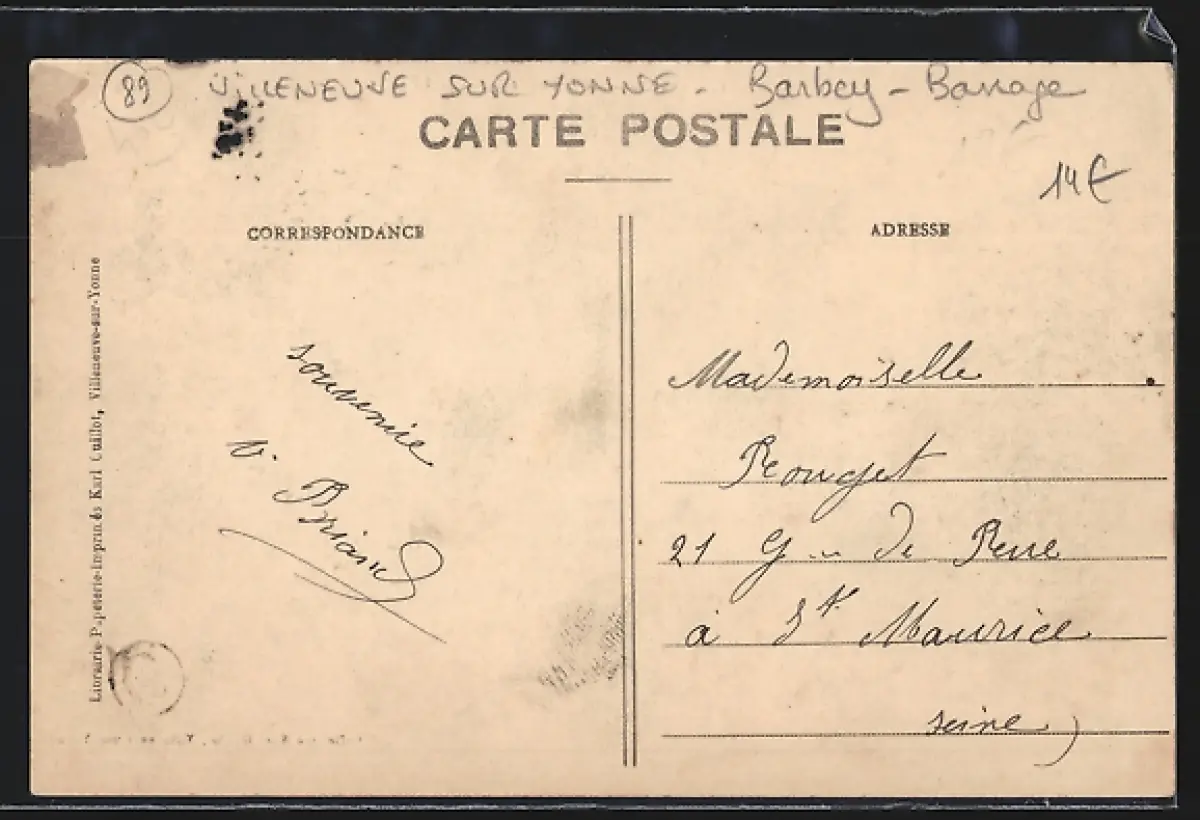 89
VILLENEUVE SUR YONNE - Barbey - Barrage
CARTE POSTALE
14€
CORRESPONDANCE
ADRESSE
Librairie-Papeterie-Imprimés Karl Guillot, Villeneuve-sur-Yonne
souvenir
V. Briand
Mademoiselle
Rouget
21 G de Rue
à St Maurice
seine)